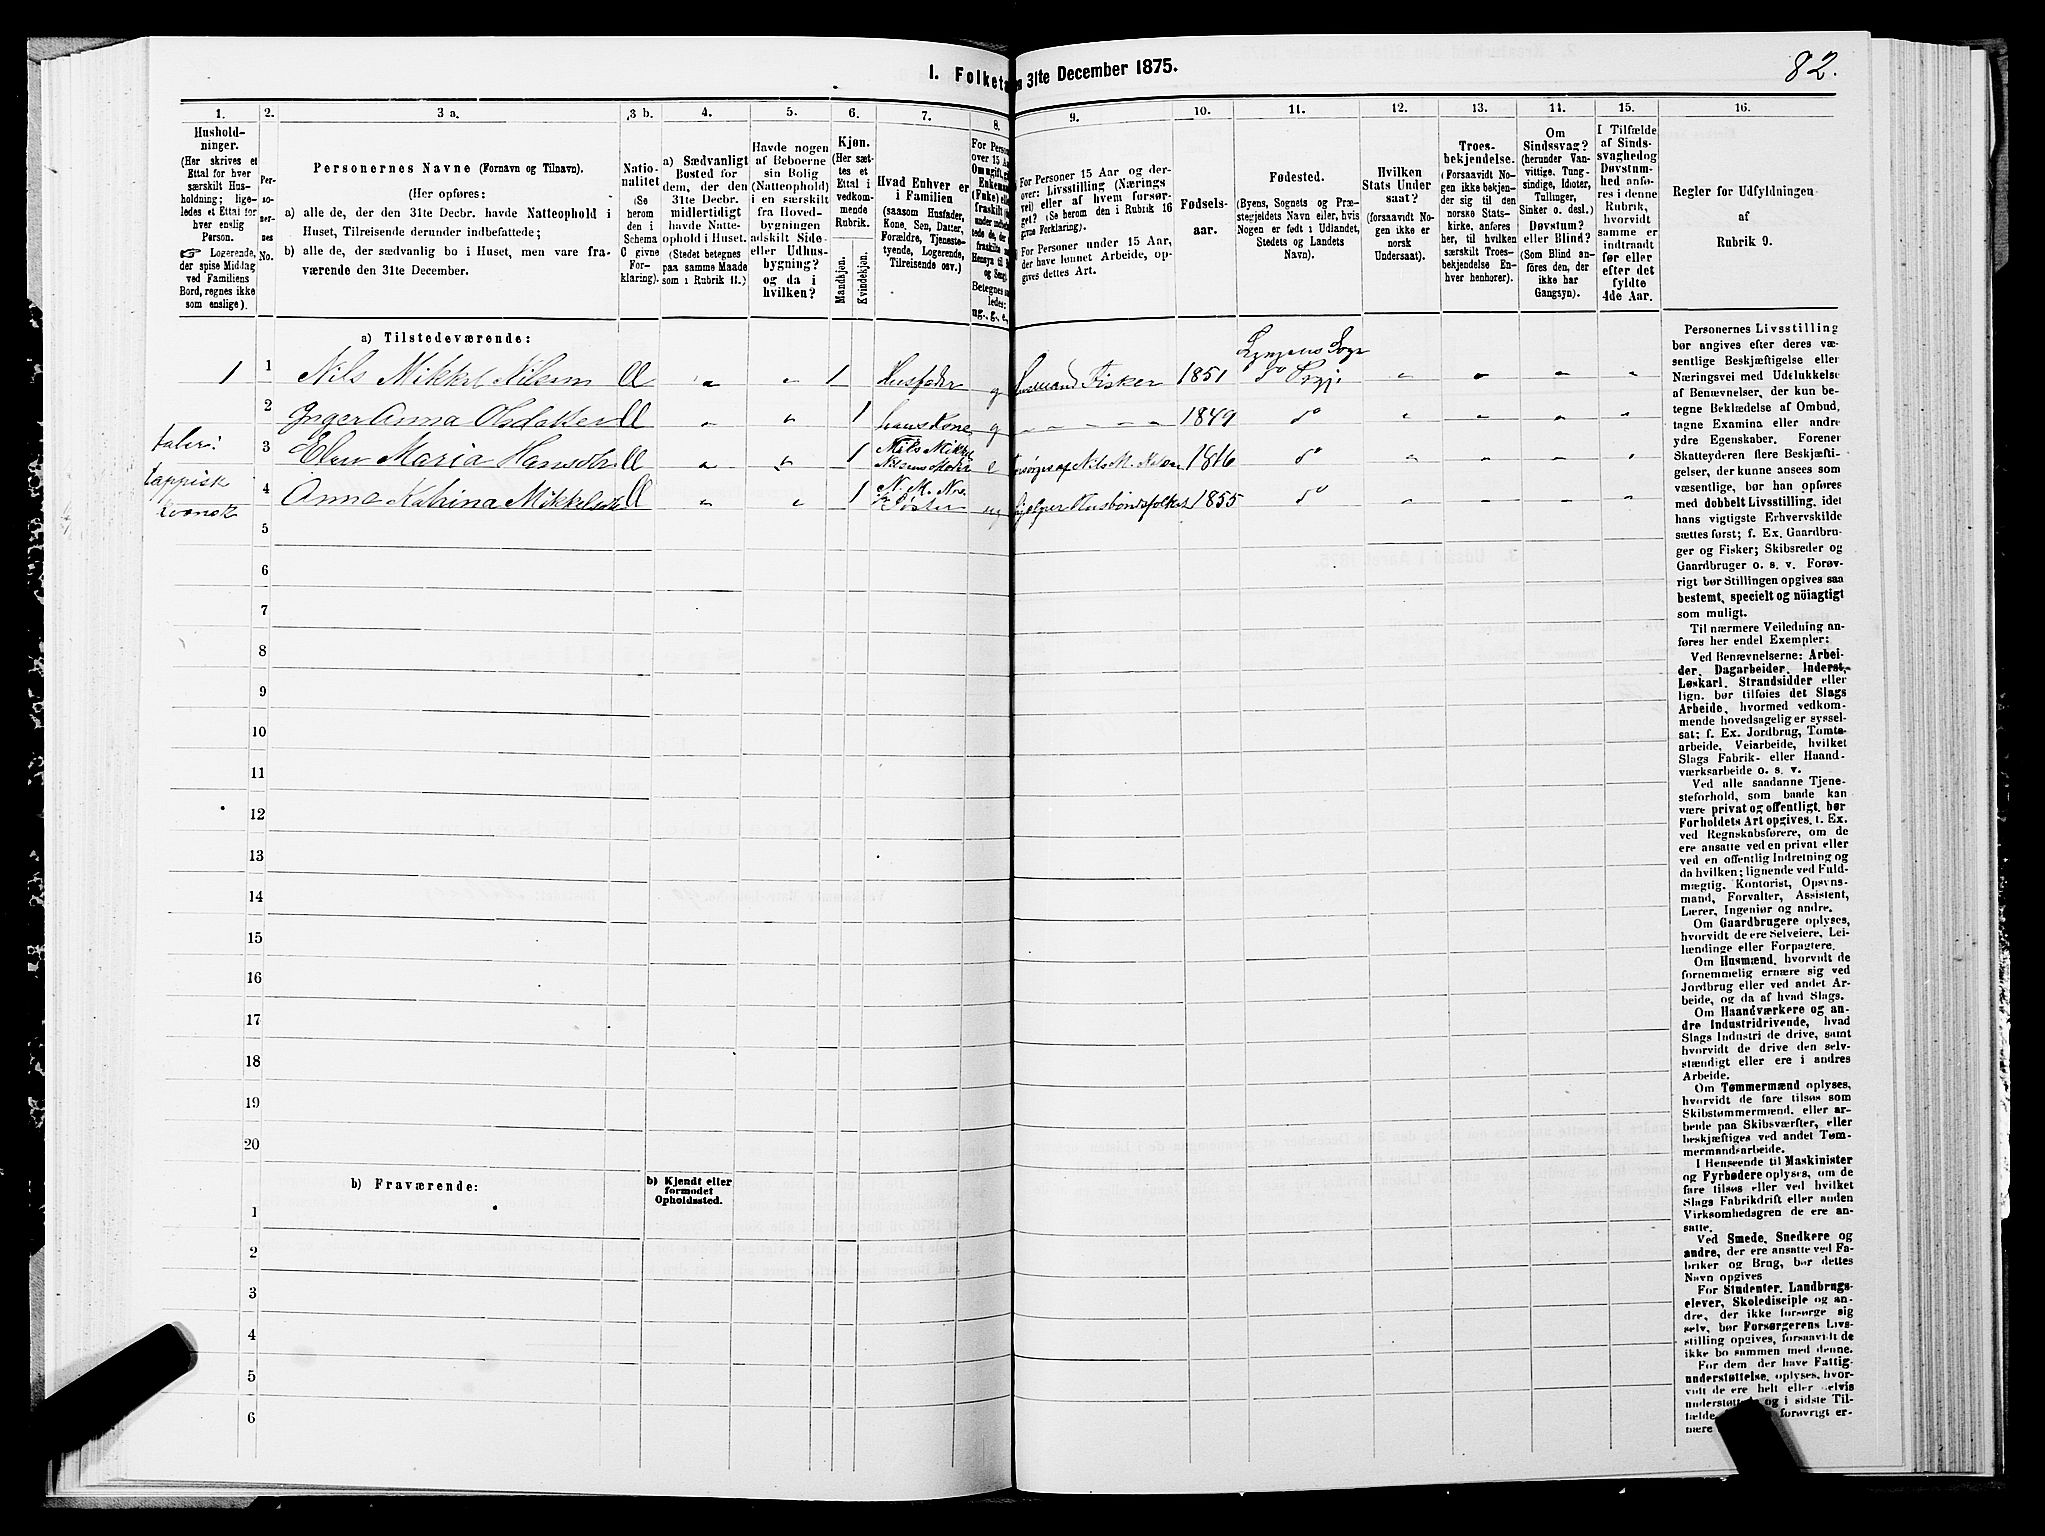 82.
I. Folketa
n 31te December 1875.
1.
2.
3 a.
3 b.
4.
5.
6.
7.
8.
9.
10.
11.
12.
13.
14.
15.
16.
Hushold-
ninger.
(Her skrives et
Ettal for hver
særskilt Hus-
holdning; lige-
ledes et Ettal for
hver enslig
Person.
☞ Logerende,
der spise Middag
ved Familiens
Bord, regnes ikke
som enslige).
Per-
so-
ner-
nes
No.
Personernes Navne (Fornavn og Tilnavn).
(Her opføres:
a) alle de, der den 31te Decbr. havde Natteophold i
Huset, Tilreisende derunder indbefattede;
b) alle de, der sædvanlig bo i Huset, men vare fra-
værende den 31te December.
Natio-
nalitet
(Se
herom
den i
Schema
C givne
For-
klaring).
a) Sædvanligt
Bosted for
dem, der den
31te Decbr.
midlertidigt
havde Natte-
ophold i Huset.
(Stedet betegnes
paa samme Maade
som i Rubrik 11.)
Havde nogen
af Beboerne
sin Bolig
(Natteophold)
i en særskilt
fra Hoved-
bygningen
adskilt Side-
eller Udhus-
bygning?
og da i
hvilken?
Kjøn.
(Her sæt-
tes et
Ettal i
vedkom-
mende
Rubrik.
Mandkjøn.
Kvindekjøn.
Hvad Enhver er
i Familien
(saasom Husfader,
Kone, Søn, Datter,
Forældre, Tjeneste-
tyende, Logerende,
Tilreisende osv.)
For Person
over 15 Aa
Om ugift, gi
Enkeman
(Frak) elle
fraskilt
og Sæng
Betegnes
ledes:
ug., g., e.,
For Personer 15 Aar og der-
over: Livsstilling (Nærings
vei) eller af hvem forsør-
get? (Se herom den i Rubrik 16
givne Forklaring).
For Personer under 15 Aar,
der have lønnet Arbeide, op-
gives dettes Art.
Fødsels-
aar.
Fødested.
(Byens, Sognets og Præ-
stegjeldets Navn eller, hvis
Nogen er født i Udlandet,
Stedets og Landets
Navn).
Hvilken
Stats Under
saat?
(forsaavidt No-
gen ikke er
norsk
Undersaat).
Troes-
bekjendelse.
(Forsaavidt No-
gen ikke bekjen-
der sig til den
norske Stats-
kirke, anføres
her, til hvilken
særskilt Troes-
bekjendelse En-
hver henhører).
Om
Sindssvag?
(herunder Van-
vittige, Tung-
sindige, Idioter,
Tullinger,
Sinker o. desl.)
Døvstum?
eller Blind?
(Som Blind an-
føres den, der
ikke har
Gangsyn).
I Tilfælde
af Sinds-
svaghed og
Døvstum-
hed anfø-
res i denne
Rubrik,
hvorvidt
samme er
indtraadt
før eller
efter det
fyldte
4de Aar.
Regler for Udfyldningen
af
Rubrik 9.
a) Tilstedeværende:
1 1 Nils Mikkel Nilsen 1 Husfader g Husmand Fisker 1851 Lyngens Sogn
2 Inger Anna Olsdatter 1 hans Kone g 1849 do
taler: 3 Elen Maria Hansdtr 1 Nils Mikkel Nilsens Moder e forsørges af Nils M. Nilsen 1816 do
lappisk 4 Anne Katrina Mikkelsdtr 1 Søster ug hjelper Husbondsfolket 1855 do
kvensk
5
6
7
8
9
10
11
12
13
14
15
16
17
18
19
20
b) Fraværende:
b) Kjendt eller
formodet
Opholdssted.
1
2
3
4
5
6
Personernes Livsstilling
bør angives efter deres væ-
sentlige Beskjæftigelse eller
Næringsvei med Udelukkelse
af Benævnelser, der kun be-
tegne Beklædelse af Ombud,
tagne Examina eller andre
ydre Egenskaber. Forener
Skatteyderen flere Beskjæfti-
gelser, der kunne ansees som
væsentlige, bør han opføres
med dobbelt Livsstilling, idet
hans vigtigste Erhvervskilde
sættes først; f. Ex. Gaardbru-
ger og Fisker; Skibsreder og
Gaardbruger o. s. v. Forøv-
rigt bør Stillingen opgives saa
bestemt, specielt og nöiagtigt
som muligt.
Til nærmere Veiledning an-
føres her endel Exempler:
Ved Benævnelserne: Arbei-
der, Dagarbeider, Inderst,
Løskarl, Strandsidder eller
lign. bør tilføies det Slags
Arbeide, hvormed vedkom-
mende hovedsagelig er syssel-
sat; f. Ex. Jordbrug, Tomte-
arbeide, Veiarbeide, hvilket
Slags Fabrik- eller Haand-
værksarbeide o. s. v.
Ved alle saadanne Tjene-
steforhold, som baade kan
være privat og offentligt, bør
Forholdets Art opgives, f. Ex.
ved Regnskabsførere, om de
ere ansatte ved en privat eller
ved en offentlig Indretning og
da hvilken; lignende ved Fuld-
mægtig, Kontorist, Opsyns-
mand, Forvalter, Assistent,
Lærer, Ingeniør og andre.
Om Gaardbrugere oplyses,
hvorvidt de ere Selveiere, Lei-
lændinge eller Forpagtere.
Om Husmænd, hvorvidt de
fornemmelig ernære sig ved
Jordbrug eller ved andet Ar-
beide, og da af hvad Slags.
Om Haandværkere og an-
dre Industridrivende, hvad
Slags Industri de drive, samt
hvorvidt de drive den selv-
stændigt eller ere i andres
Arbeide.
Om Tømmermænd oplyses,
hvorvidt de fare tilsøs som
Skibstømmermænd, eller ar-
beide paa Skibsværfter, eller
beskjæftiges ved andet Tøm-
mermandsarbeide.
I Henseende til Maskinister
og Fyrbødere oplyses, om de
fare tilsøs eller ved hvilket
Slags Fabrikdrift eller anden
Virksomhedsgren de ere an-
satte.
Ved Smede, Snedkere og
andre, der ere ansatte ved Fa-
briker og Brug, bør dettes
Navn opgives
For Studenter, Landbrugs-
elever, Skoledisciple og an-
dre, der ikke forsørge sig
selv, bør Forsørgerens Livs-
stilling opgives, forsaavidt de
ikke bo sammen med denne.
For dem, der have Fattig-
understøttelse, oplyses, hvor-
vidt de ere helt eller delvis
og i sidste Til-
fælde forøvrigt er-
nære